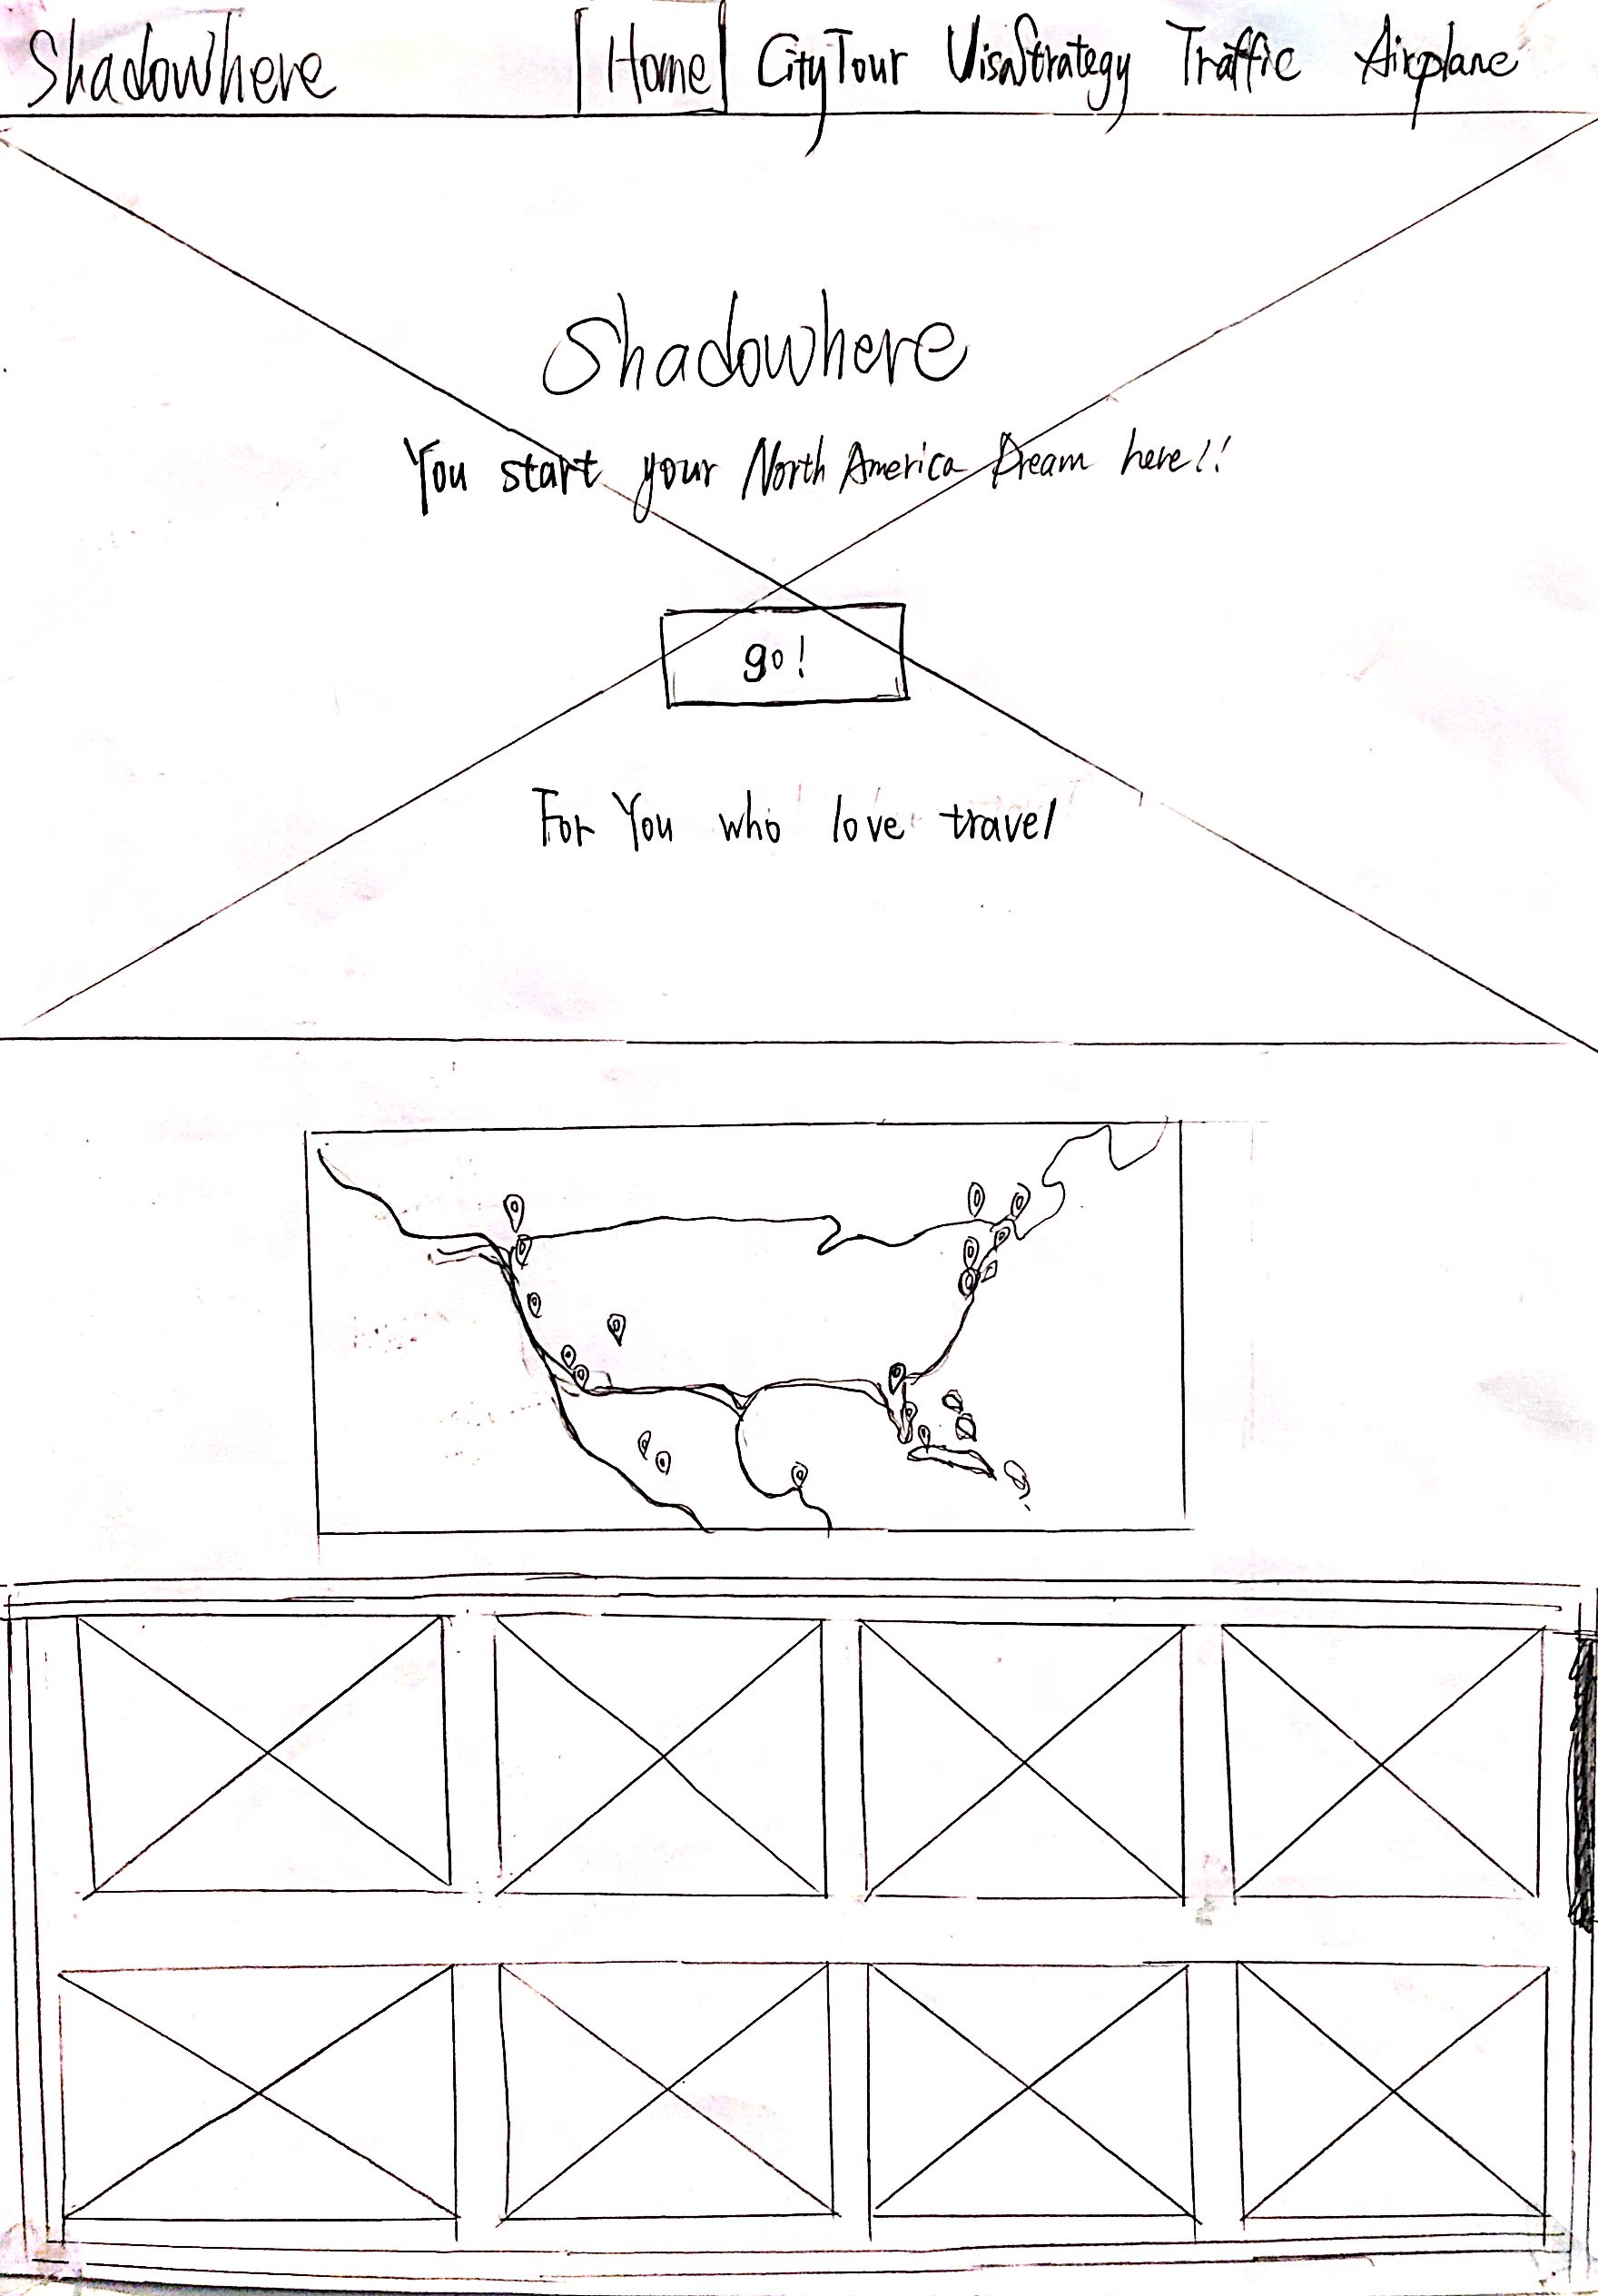 Shadowhere
Home CityTour VisaStrategy Traffic Airplane
Shadowhere
You start your North America Dream here!!
go!
For You who love travel